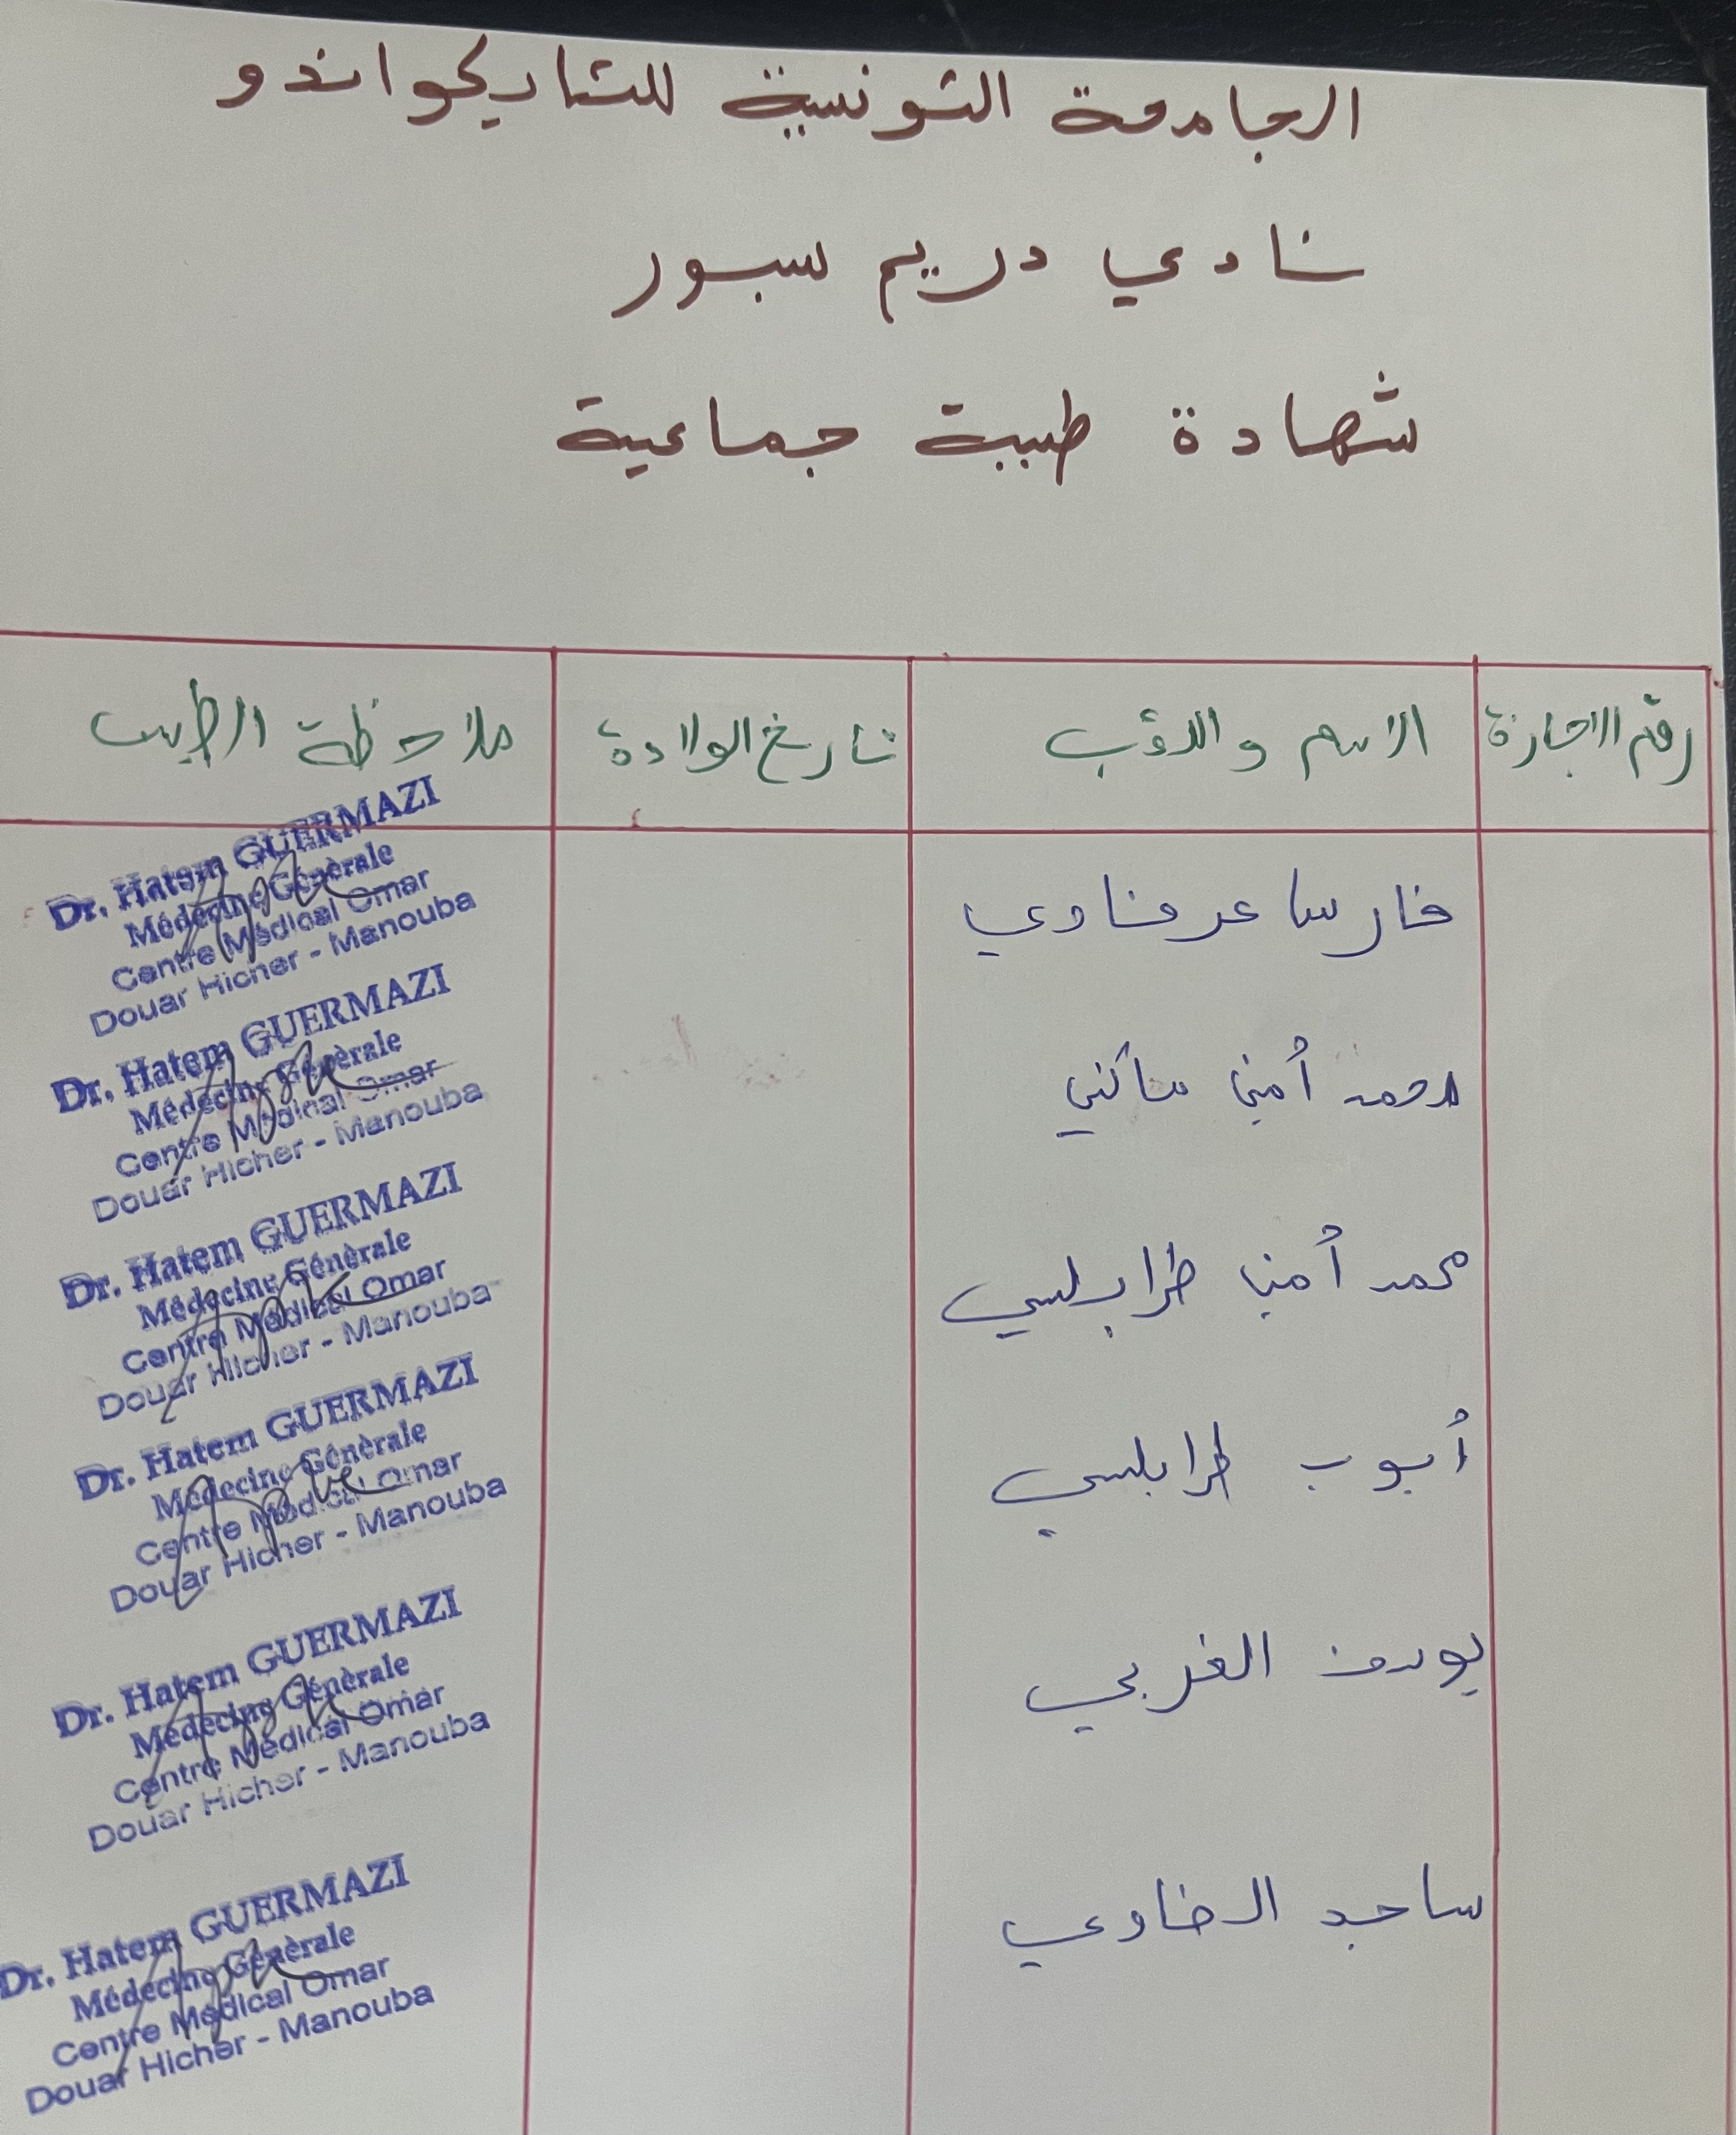 الجامعة التونسية للتايكواندو
نادي دريم سبور
شهادة طبية جماعية
رقم الاجازة الاسم واللقب تاريخ الولادة ملاحظة الطبيب
فارس عرفاوي
Dr. Hatem GUERMAZI
Médecine Générale
Centre Médical Omar
Douar Hicher - Manouba
محمد أمين ساكني
Dr. Hatem GUERMAZI
Médecine Générale
Centre Médical Omar
Douar Hicher - Manouba
محمد أمين طرابلسي
Dr. Hatem GUERMAZI
Médecine Générale
Centre Médical Omar
Douar Hicher - Manouba
أيوب طرابلسي
Dr. Hatem GUERMAZI
Médecine Générale
Centre Médical Omar
Douar Hicher - Manouba
يوسف الغربي
Dr. Hatem GUERMAZI
Médecine Générale
Centre Médical Omar
Douar Hicher - Manouba
ساجد
Dr. Hatem GUERMAZI
Médecine Générale
Centre Médical Omar
Douar Hicher - Manouba